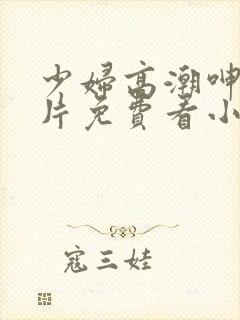 少婦高潮呻
片免費看小
寇三娃